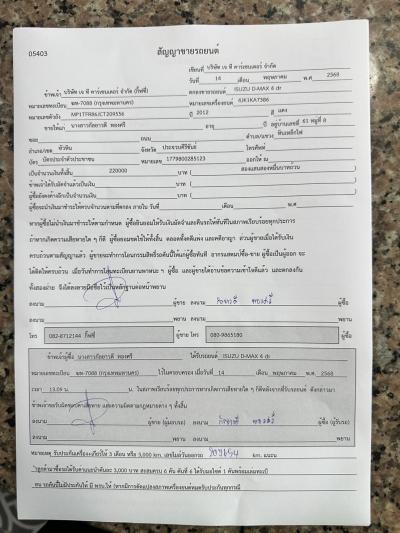 05403
สัญญาขายรถยนต์
เขียนที่ บริษัท เจ ที คาร์เซนเตอร์ จำกัด
วันที่ 14 เดือน พฤษภาคม พ.ศ. 2568
ข้าพเจ้า บริษัท เจ ที คาร์เซนเตอร์ จำกัด ตกลงขายรถยนต์ ISUZU D-MAX 4 dr
หมายเลขทะเบียน 7088 (กรุงเทพมหานคร) หมายเลขเครื่องยนต์ 4JK1KA7386
หมายเลขตัวถัง MP1TFR86JCT209556 ปี 2012 สี แดง
ขายให้แก่ นางสาวกัลยารดี ทองศรี อายุ ปี อยู่บ้านเลขที่ 61 หมู่ที่ 8
ซอย ถนน ตำบล/แขวง หินเหล็กไฟ
อำเภอ/เขต หัวหิน จังหวัด ประจวบคีรีขันธ์ โทรศัพท์
บัตร บัตรประจำตัวประชาชน หมายเลข 1779800285123 ออกให้ ณ
เป็นจำนวนเงินทั้งสิ้น 220000 บาท ( สองแสนสองหมื่นบาทถ้วน )
ข้าพเจ้าได้รับมัดจำแล้วเป็นเงิน บาท ( )
ผู้ซื้อยังคงค้างอีกเป็นจำนวนเงิน บาท ( )
ผู้ซื้อจะนำเงินมาชำระให้ครบจำนวนตามที่ตกลง ภายใน วันที่ เดือน พ.ศ.
หากผู้ซื้อไม่นำเงินมาชำระตามกำหนด ผู้ซื้อยินยอมให้ริบเงินมัดจำและคืนรถให้ทันทีในสภาพเรียบร้อยทุกประการ
ถ้าหากเกิดความเสียหายใด ๆ ก็ดี ผู้ซื้อยอมชดใช้ให้ทั้งสิ้น ตลอดทั้งคดีแพ่ง และคดีอาญา ส่วนผู้ขายเมื่อได้รับเงิน
ครบถ้วนตามสัญญาแล้ว ผู้ขายจะทำการโอนกรรมสิทธิ์รถคันนี้ให้แก่ผู้ซื้อทันที อากรแสตมป์ซื้อ-ขาย ผู้ซื้อเป็นผู้ออก จะ
ทั้งสองฝ่าย จึงได้ลงลายมือชื่อไว้เป็นหลักฐานต่อหน้าพยาน
ลงนาม ผู้ขาย ลงนาม ผู้ซื้อ
ลงนาม พยาน ลงนาม พยาน
โทร 082-8712144 กิ๊ฟซี่ ผู้ขาย โทร 080-9865180 ผู้ซื้อ
ข้าพเจ้าผู้ซื้อ นางสาวกัลยารดี ทองศรี ได้รับรถยนต์ ISUZU D-MAX 4 dr
หมายเลขทะเบียน 7088 (กรุงเทพมหานคร) ไว้ในครอบครอง เมื่อวันที่ 14 เดือน พฤษภาคม พ.ศ. 2568
เวลา 13.09 น. ในสภาพเรียบร้อยทุกประการหากเกิดการเสียหายใด ๆ ก็ดีหลังจากที่รับรถยนต์ ดังกล่าวมา
ข้าพเจ้าขอรับผิดชอบค่าเสียหาย และความผิดตามกฎหมายต่าง ๆ ทั้งสิ้น
ลงนาม ผู้ขาย (ผู้มอบรถ) ลงนาม ผู้ซื้อ (ผู้รับรถ)
ลงนาม พยาน ลงนาม พยาน
หมายเหตุ รับประกันเครื่อง+เกียร์ให้ 3 เดือน หรือ 3,000 km. เลขไมล์วันออกรถ km.